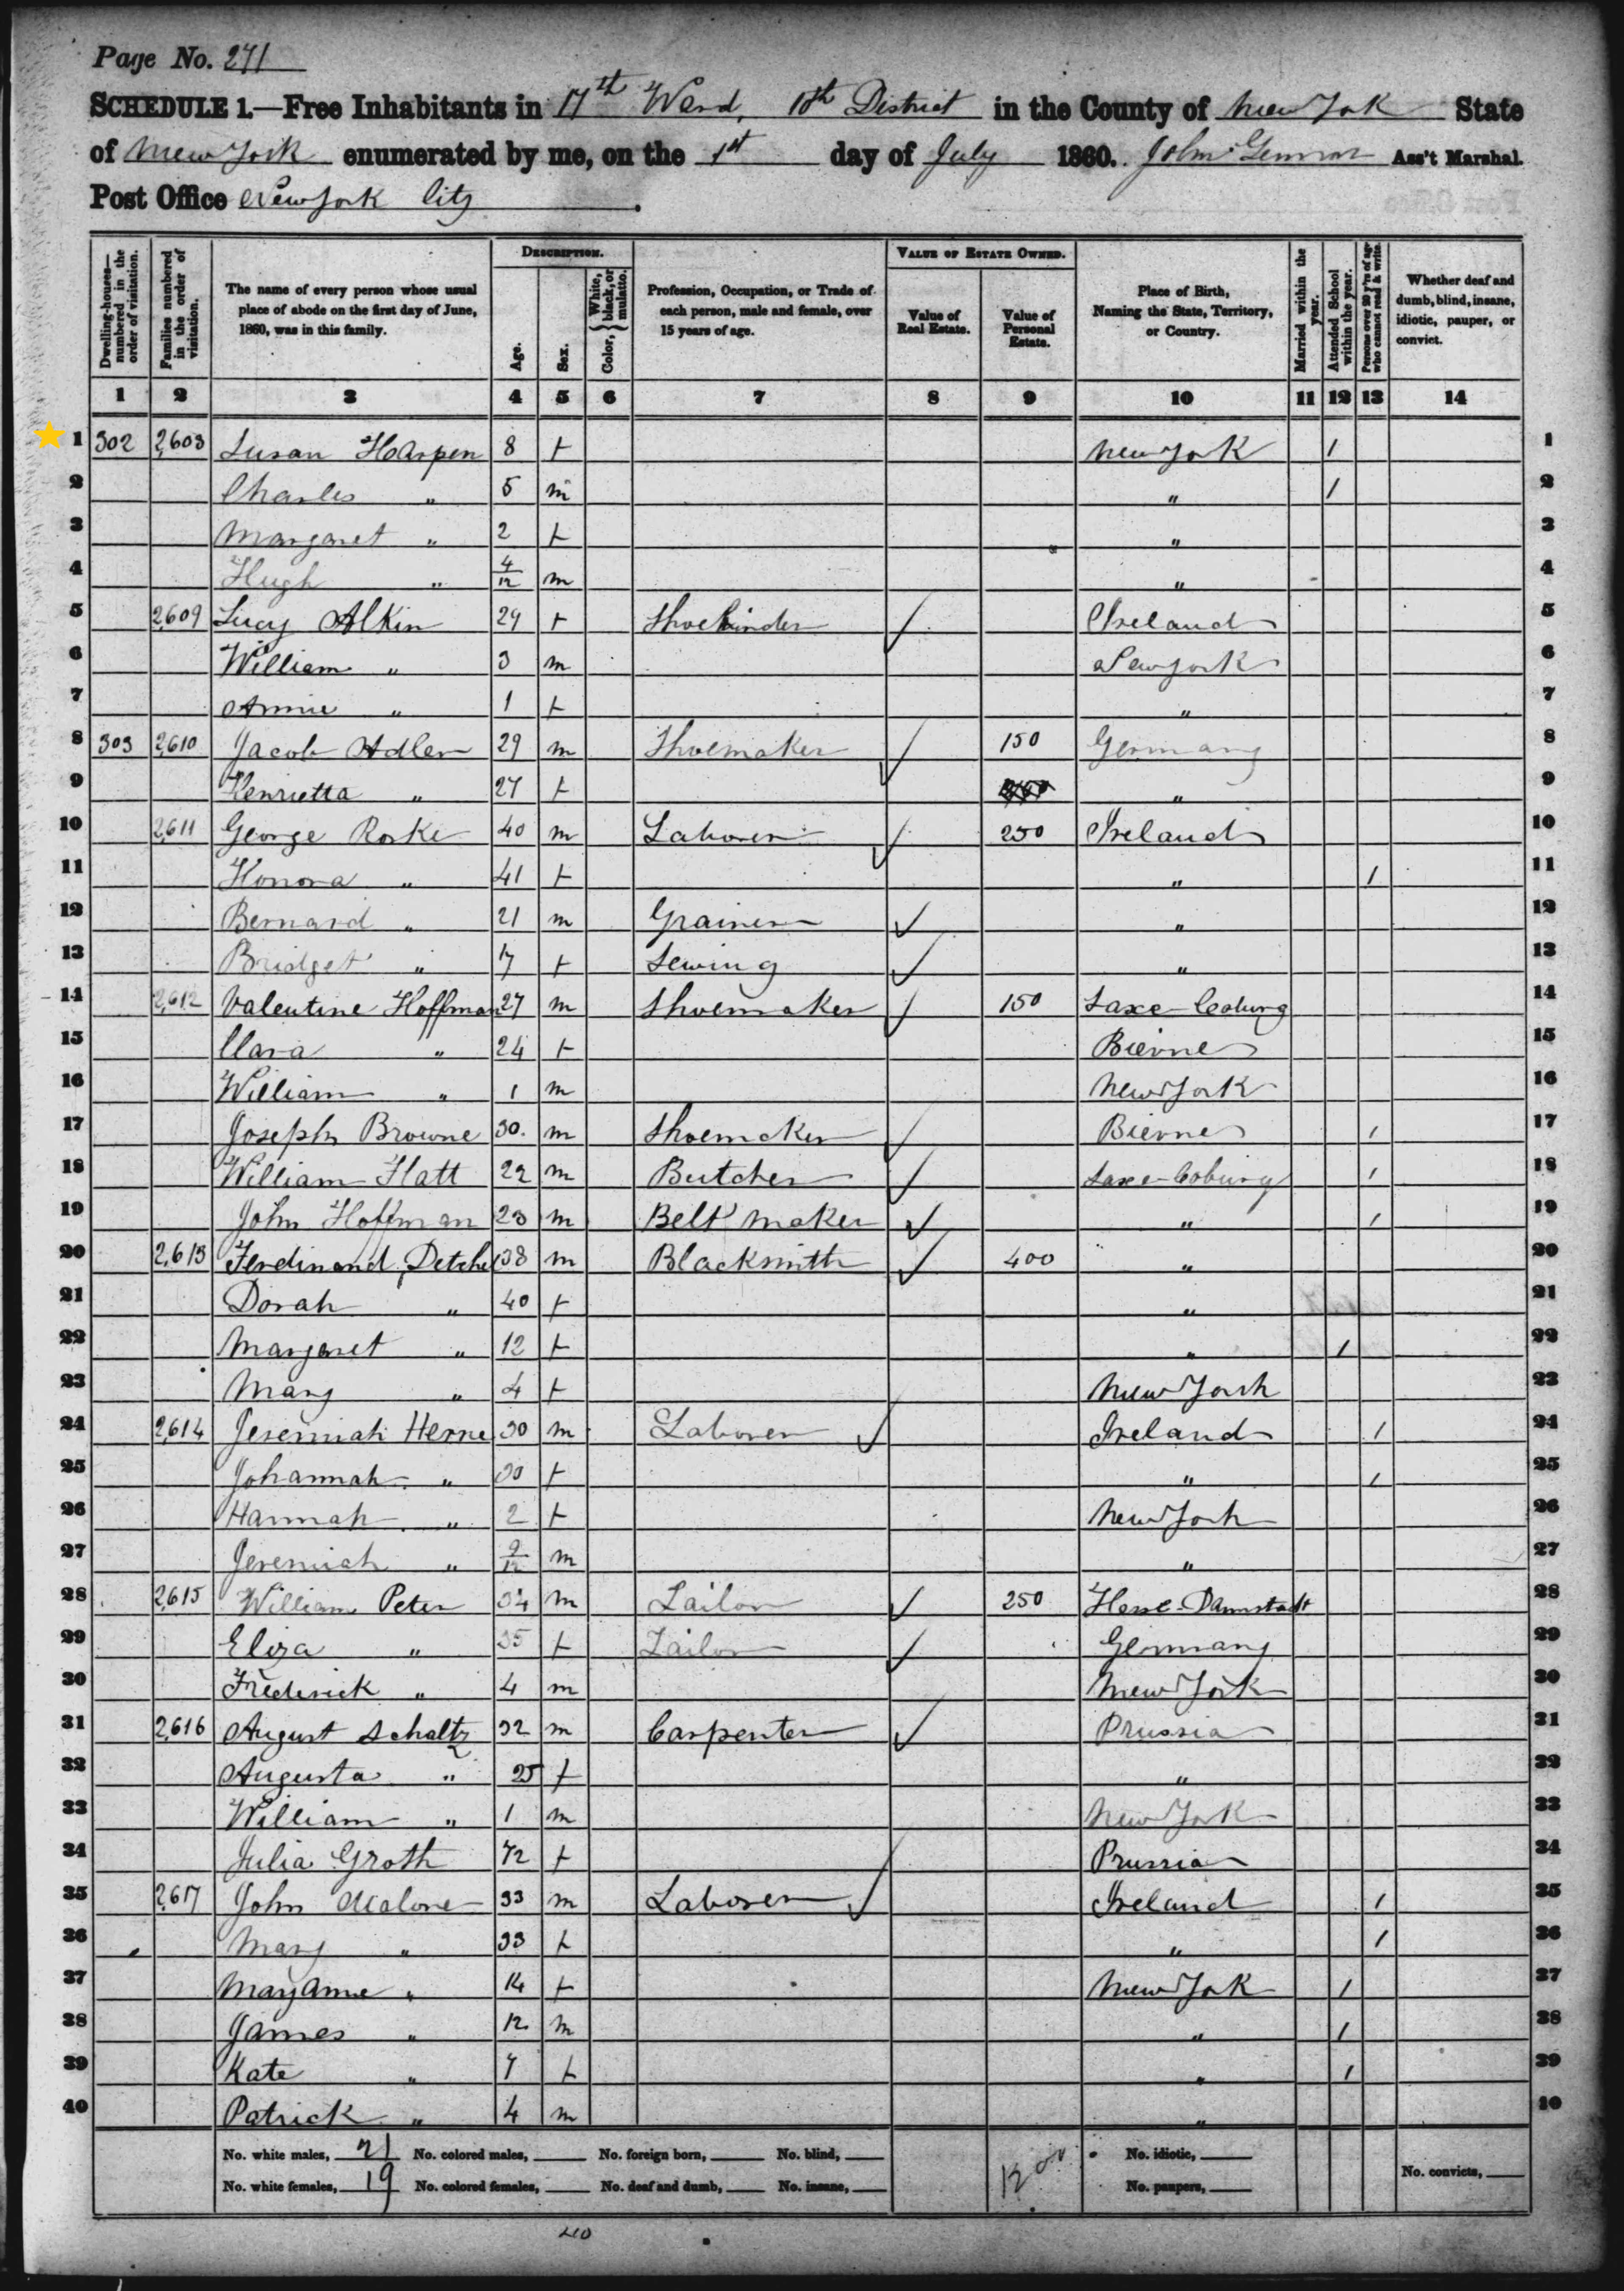 Page No. 271
SCHEDULE 1.—Free Inhabitants in 17th Ward, 10th District in the County of New York State
of New York enumerated by me, on the 1st day of July 1860. John Ass't Marshal.
Post Office New York City
Dwelling-houses—numbered in the order of visitation. Families numbered in the order of visitation. The name of every person whose usual place of abode on the first day of June, 1860, was in this family. DESCRIPTION. Age. Sex. Color, { White, black, or mulatto. Profession, Occupation, or Trade of each person, male and female, over 15 years of age. VALUE OF ESTATE OWNED. Value of Real Estate. Value of Personal Estate. Place of Birth, Naming the State, Territory, or Country. Married within the year. Attended School within the year. Persons over 20 y'rs of age who cannot read & write. Whether deaf and dumb, blind, insane, idiotic, pauper, or convict.
1 2 3 4 5 6 7 8 9 10 11 12 13 14
1 302 2,603 Susan Harpen 8 f New York / 1
2 Charles " 5 m " / 2
3 Margaret " 2 f " 3
4 Hugh " 4/12 m " 4
5 2,609 Lucy Alkin 29 f Shoebinder ✓ Ireland 5
6 William " 3 m New York 6
7 Annie " 1 f " 7
8 303 2,610 Jacob Adler 29 m Shoemaker ✓ 150 Germany 8
9 Henrietta " 27 f " 9
10 2,611 George Rorke 40 m Laborer ✓ 250 Ireland 10
11 Honora " 41 f " / 11
12 Bernard " 21 m Grainer ✓ " 12
13 Bridget " 17 f Sewing ✓ " 13
14 2,612 Valentine Hoffman 27 m Shoemaker ✓ 150 Saxe-Coburg 14
15 Clara " 24 f Bierne 15
16 William " 1 m New York 16
17 Joseph Browne 30 m Shoemaker ✓ Bierne / 17
18 William Flatt 22 m Butcher ✓ Saxe-Coburg / 18
19 John Hoffman 23 m Belt maker ✓ " / 19
20 2,613 Ferdinand Detchel 38 m Blacksmith ✓ 400 " 20
21 Dorah " 40 f " 21
22 Margaret " 12 f " / 22
23 Mary " 4 f New York 23
24 2,614 Jeremiah Herne 30 m Laborer ✓ Ireland / 24
25 Johannah " 30 f " / 25
26 Hannah " 2 f New York 26
27 Jeremiah " 9/12 m " 27
28 2,615 William Peter 34 m Tailor ✓ 250 Hesse-Darmstadt 28
29 Eliza " 35 f Tailor ✓ Germany 29
30 Frederick " 4 m New York 30
31 2,616 August Schaltz 32 m Carpenter ✓ Prussia 31
32 Augusta " 25 f " 32
33 William " 1 m New York 33
34 Julia Groth 72 f Prussia 34
35 2,617 John Malone 33 m Laborer ✓ Ireland / 35
36 Mary " 33 f " / 36
37 Mary Anne " 14 f New York / 37
38 James " 12 m " / 38
39 Kate " 7 f " / 39
40 Patrick " 4 m " 40
No. white males, 21 No. colored males, No. foreign born, No. blind, 1200 No. idiotic,
No. white females, 19 No. colored females, No. deaf and dumb, No. insane, No. paupers, No. convicts,
40